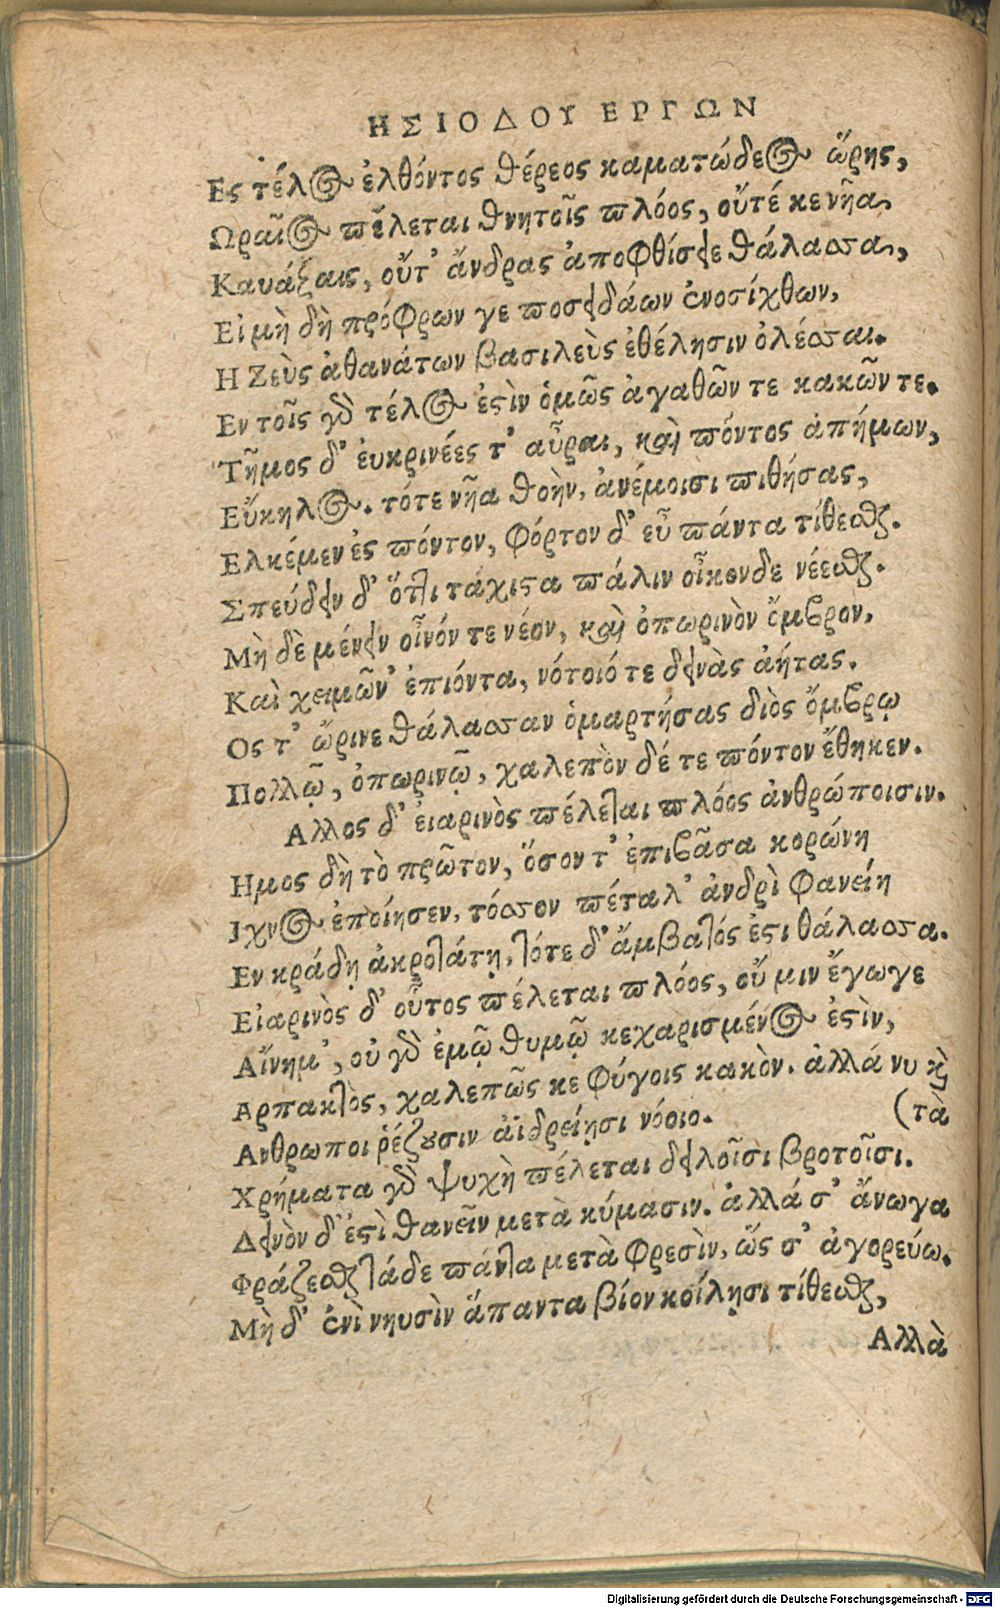 ΗΣΙΟΔΟΥ ΕΡΓΩΝ
Ες τέλος ἐλθόντος θέρεος καματώδεος ὥρης,
Ωραῖος πέλεται θνητοῖς πλόος, οὔτέ κε νῆα
Καυάξαις, οὔτ' ἄνδρας ἀποφθίσειε θάλασσα,
Εἰ μὴ δὴ πρόφρων γε ποσειδάων ἐνοσίχθων,
Η Ζεὺς ἀθανάτων βασιλεὺς ἐθέλησιν ὀλέσσαι.
Εν τοῖς γὰρ τέλος ἐστὶν ὁμῶς ἀγαθῶν τε κακῶν τε.
Τῆμος δ' ἐυκρινέες τ' αὖραι, καὶ πόντος ἀπήμων,
Εὔκηλος. τότε νῆα θοὴν, ἀνέμοισι πιθήσας,
Ελκέμεν ἐς πόντον, φόρτον δ' εὖ πάντα τίθεσθαι.
Σπεύδειν δ' ὅττι τάχιστα πάλιν οἶκονδε νέεσθαι.
Μὴ δὲ μένειν οἶνόν τε νέον, καὶ ὀπωρινὸν ὄμβρον,
Καὶ χειμῶν' ἐπιόντα, νότοιό τε δεινὰς ἀήτας.
Ος τ' ὤρινε θάλασσαν ὁμαρτήσας διὸς ὄμβρῳ
Πολλῷ, ὀπωρινῷ, χαλεπὸν δέ τε πόντον ἔθηκεν.
Αλλος δ' εἰαρινὸς πέλεται πλόος ἀνθρώποισιν.
Ημος δὴ τὸ πρῶτον, ὅσον τ' ἐπιβᾶσα κορώνη
Ιχνος ἐποίησεν, τόσσον πέταλ' ἀνδρὶ φανείη
Εν κράδῃ ἀκροτάτῃ, τότε δ' ἄμβατός ἐστι θάλασσα.
Εἰαρινὸς δ' οὗτος πέλεται πλόος, οὔ μιν ἔγωγε
Αἴνημ', οὐ γὰρ ἐμῷ θυμῷ κεχαρισμένος ἐστὶν,
Αρπακτὸς, χαλεπῶς κε φύγοις κακὸν. ἀλλά νυ καὶ
(τὰ
Ανθρωποι ῥέζουσιν ἀϊδρείῃσι νόοιο.
Χρήματα γὰρ ψυχὴ πέλεται δειλοῖσι βροτοῖσι.
Δεινὸν δ' ἐστὶ θανεῖν μετὰ κύμασιν. ἀλλά σ' ἄνωγα
Φράζεσθαι τάδε πάντα μετὰ φρεσὶν, ὥς σ' ἀγορεύω.
Μὴ δ' ἐνὶ νηυσὶν ἅπαντα βίον κοίλῃσι τίθεσθαι,
Αλλὰ
Digitalisierung gefördert durch die Deutsche Forschungsgemeinschaft - DFG